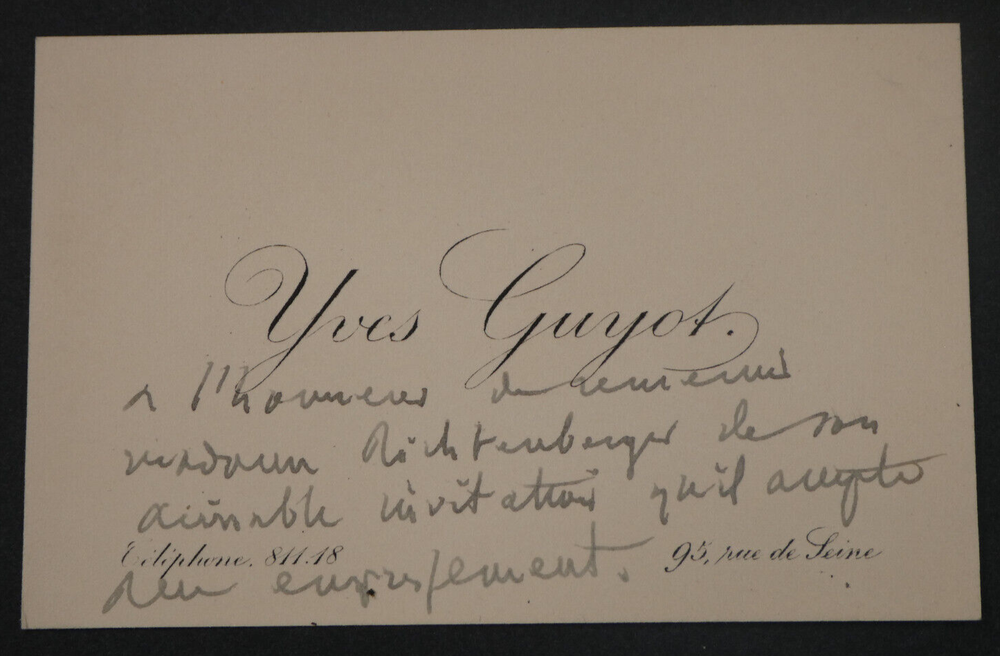 Yves Guyot.
a l'honneur de remercier
madame Richtenberger de son
aimable invitation qu'il accepte
Téléphone. 811.18
95, rue de Seine
avec empressement.